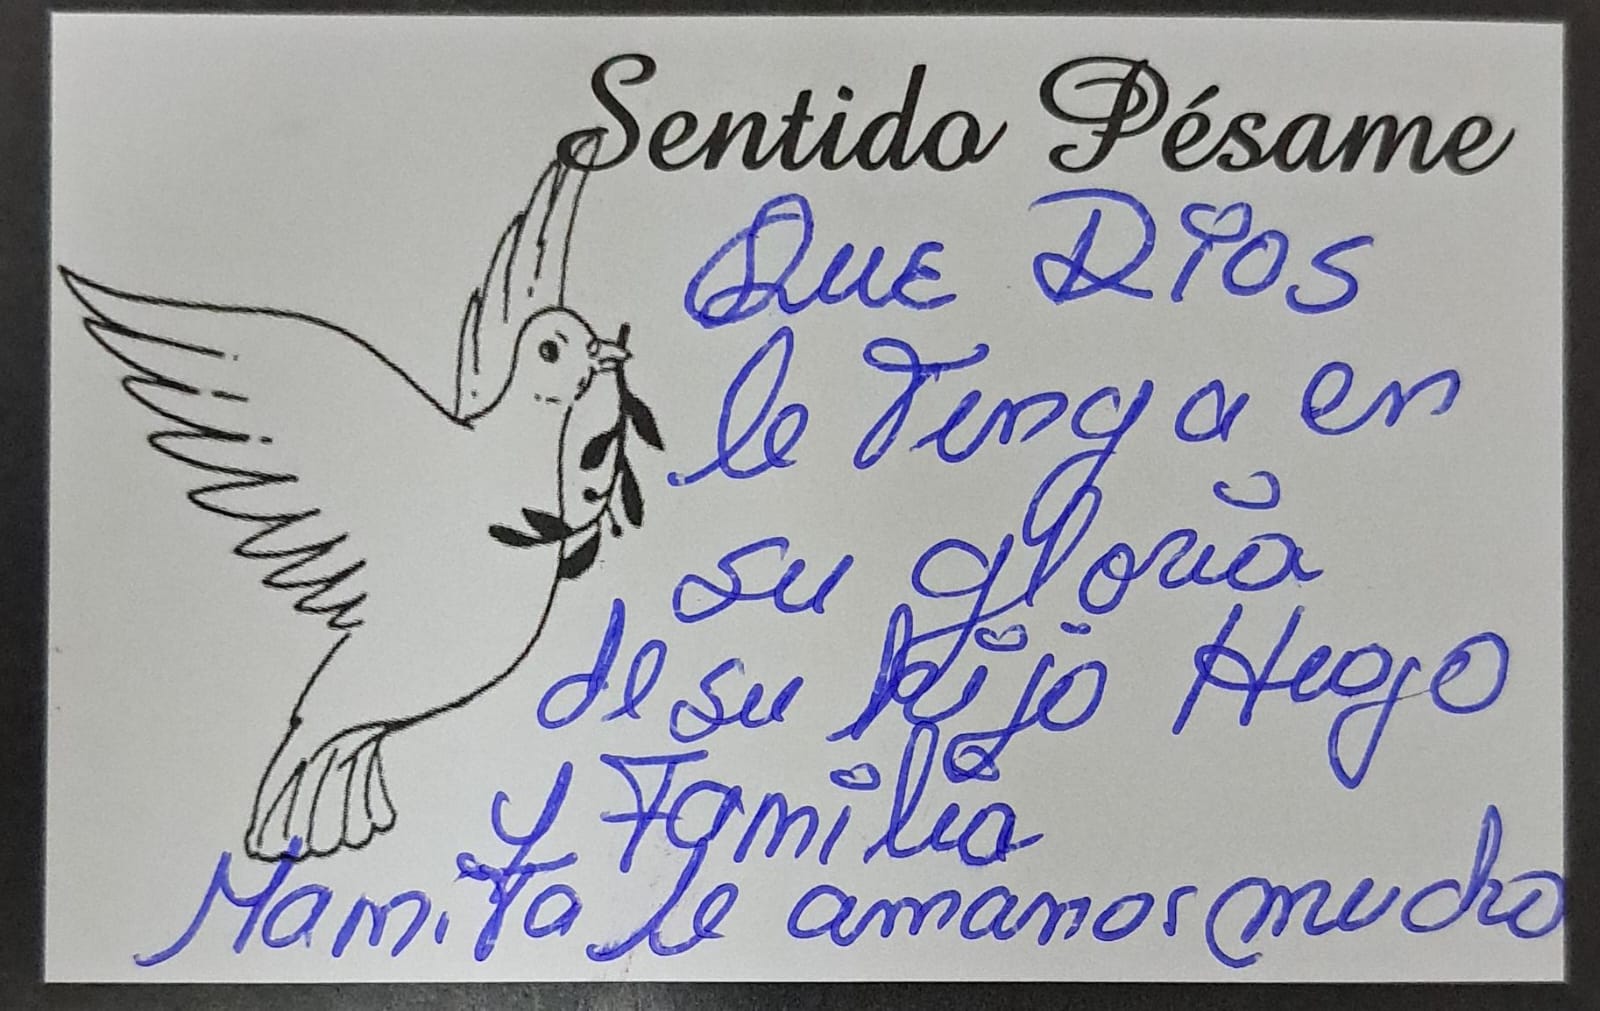 Sentido Pésame
Que Dios
le Tenga en
su gloria
de su hijo Hugo
y Familia
Mamita le amamos mucho